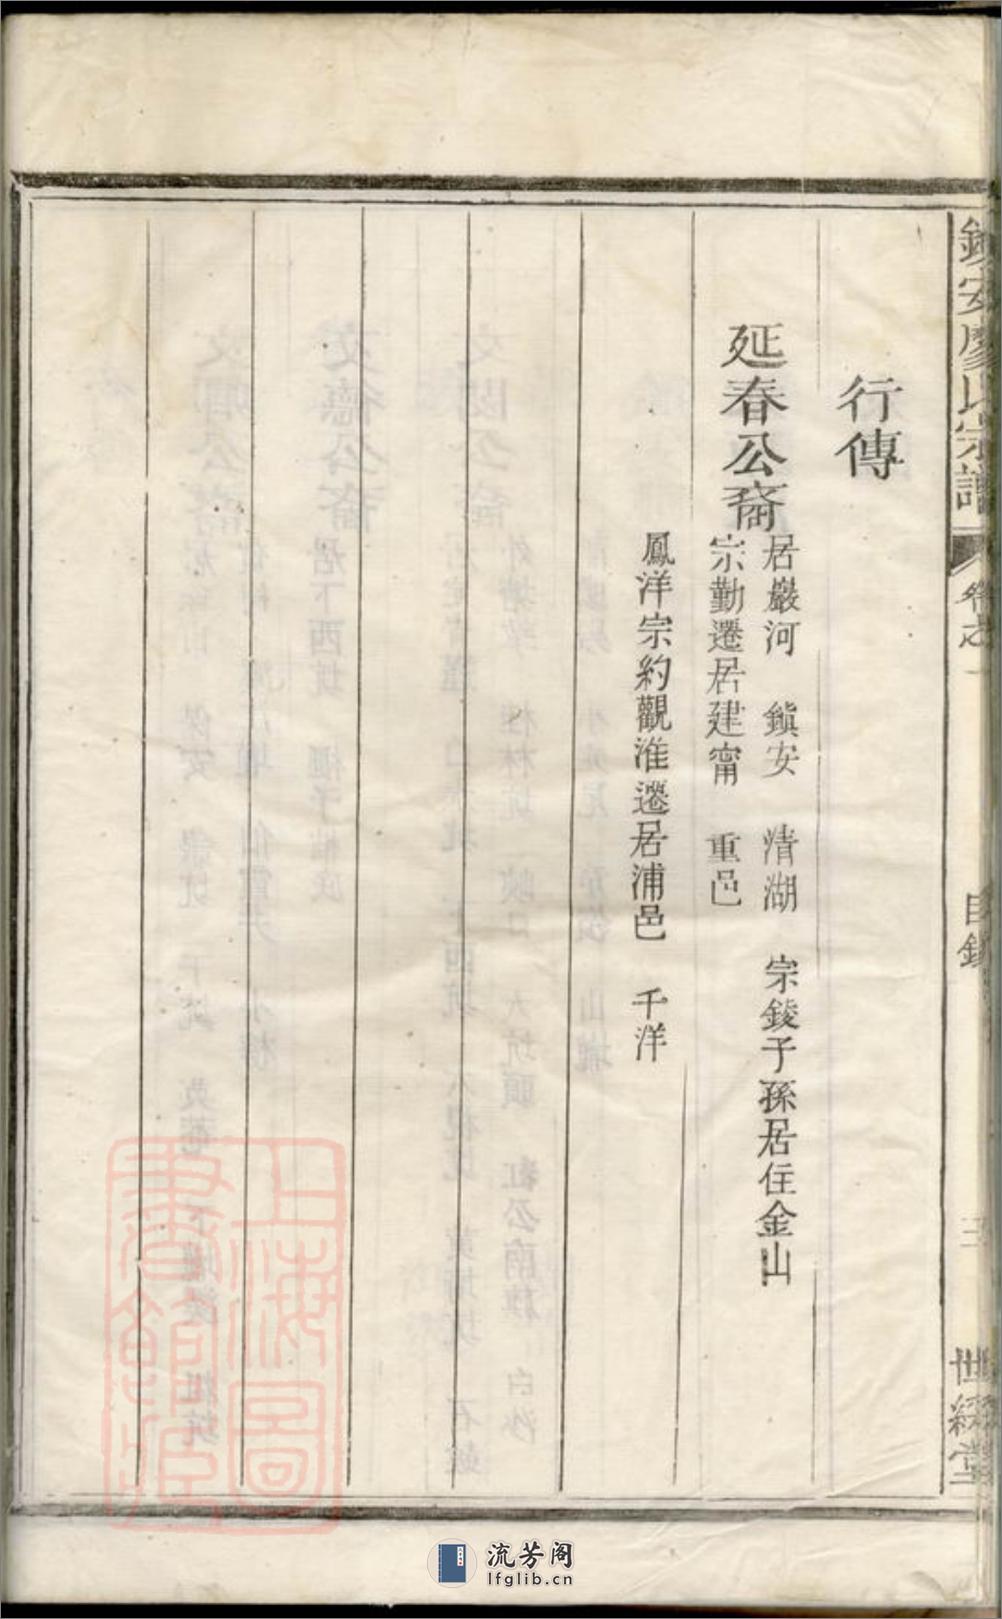 鎮安廖氏宗譜
卷之一
目錄
三
世綵堂
行傳
延春公裔
居巖河　鎮安　清湖　宗錂子孫居住金山
宗勤遷居建甯　重邑
鳳洋宗約觀淮遷居浦邑　千洋
上海圖
書館藏
流芳阁
lfglib.cn